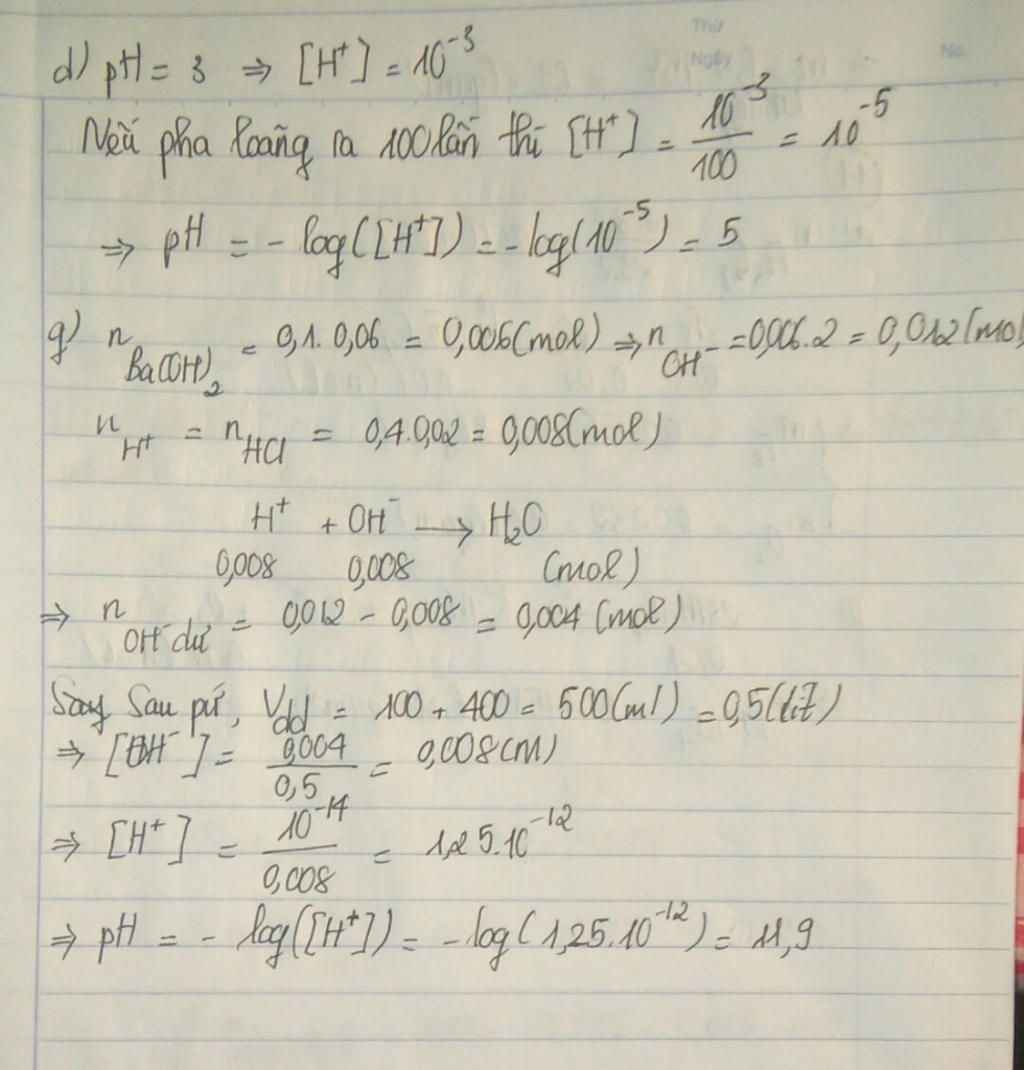 Thứ
Ngày
No.
d) pH = 3 ⇒ [H⁺] = 10⁻³
Nếu pha loãng ra 100 lần thì [H⁺] = 10⁻³/100 = 10⁻⁵
⇒ pH = - log([H⁺]) = - log(10⁻⁵) = 5
g) n Ba(OH)₂ = 0,1. 0,06 = 0,006(mol) ⇒ n OH⁻ = 0,006.2 = 0,012(mo
n H⁺ = n HCl = 0,4.0,02 = 0,008(mol)
H⁺ + OH⁻ → H₂O
0,008 0,008 (mol)
⇒ n OH⁻ dư = 0,012 - 0,008 = 0,004 (mol)
Sau pứ, Vdd = 100 + 400 = 500(ml) = 0,5(lít)
⇒ [OH⁻] = 0,004/0,5 = 0,008(M)
⇒ [H⁺] = 10⁻¹⁴/0,008 = 1,25.10⁻¹²
⇒ pH = - log([H⁺]) = - log(1,25.10⁻¹²) = 11,9